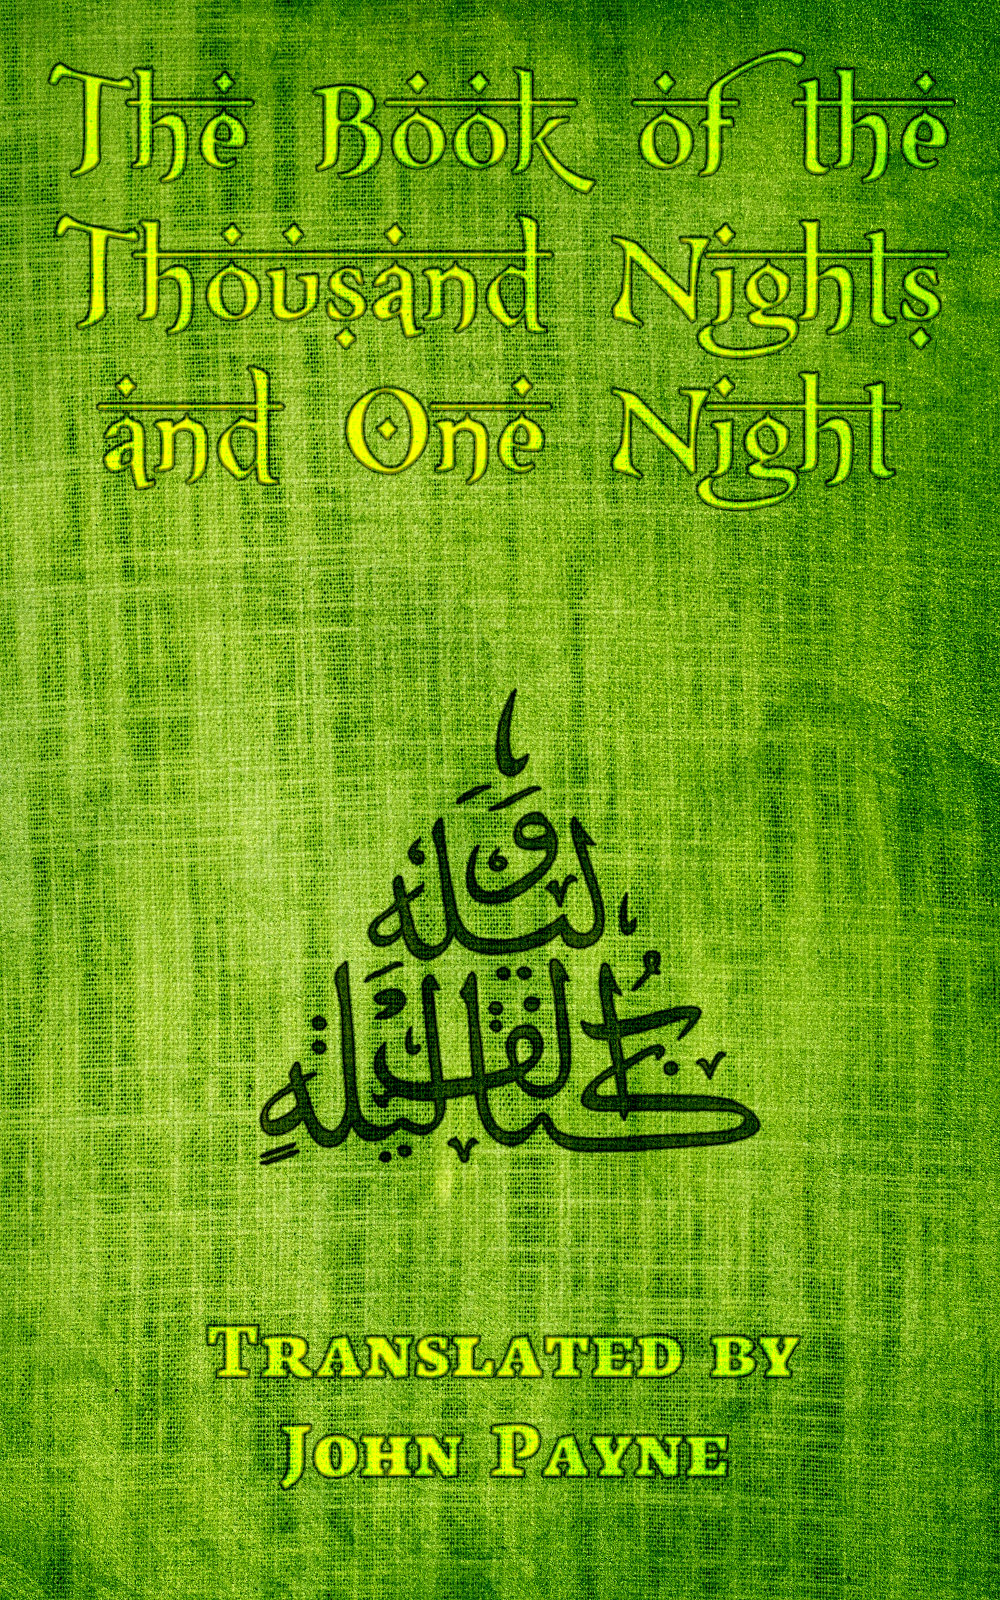 The Book of the
Thousand Nights
and One Night
كتاب ألف ليلة
وليلة
Translated by
John Payne